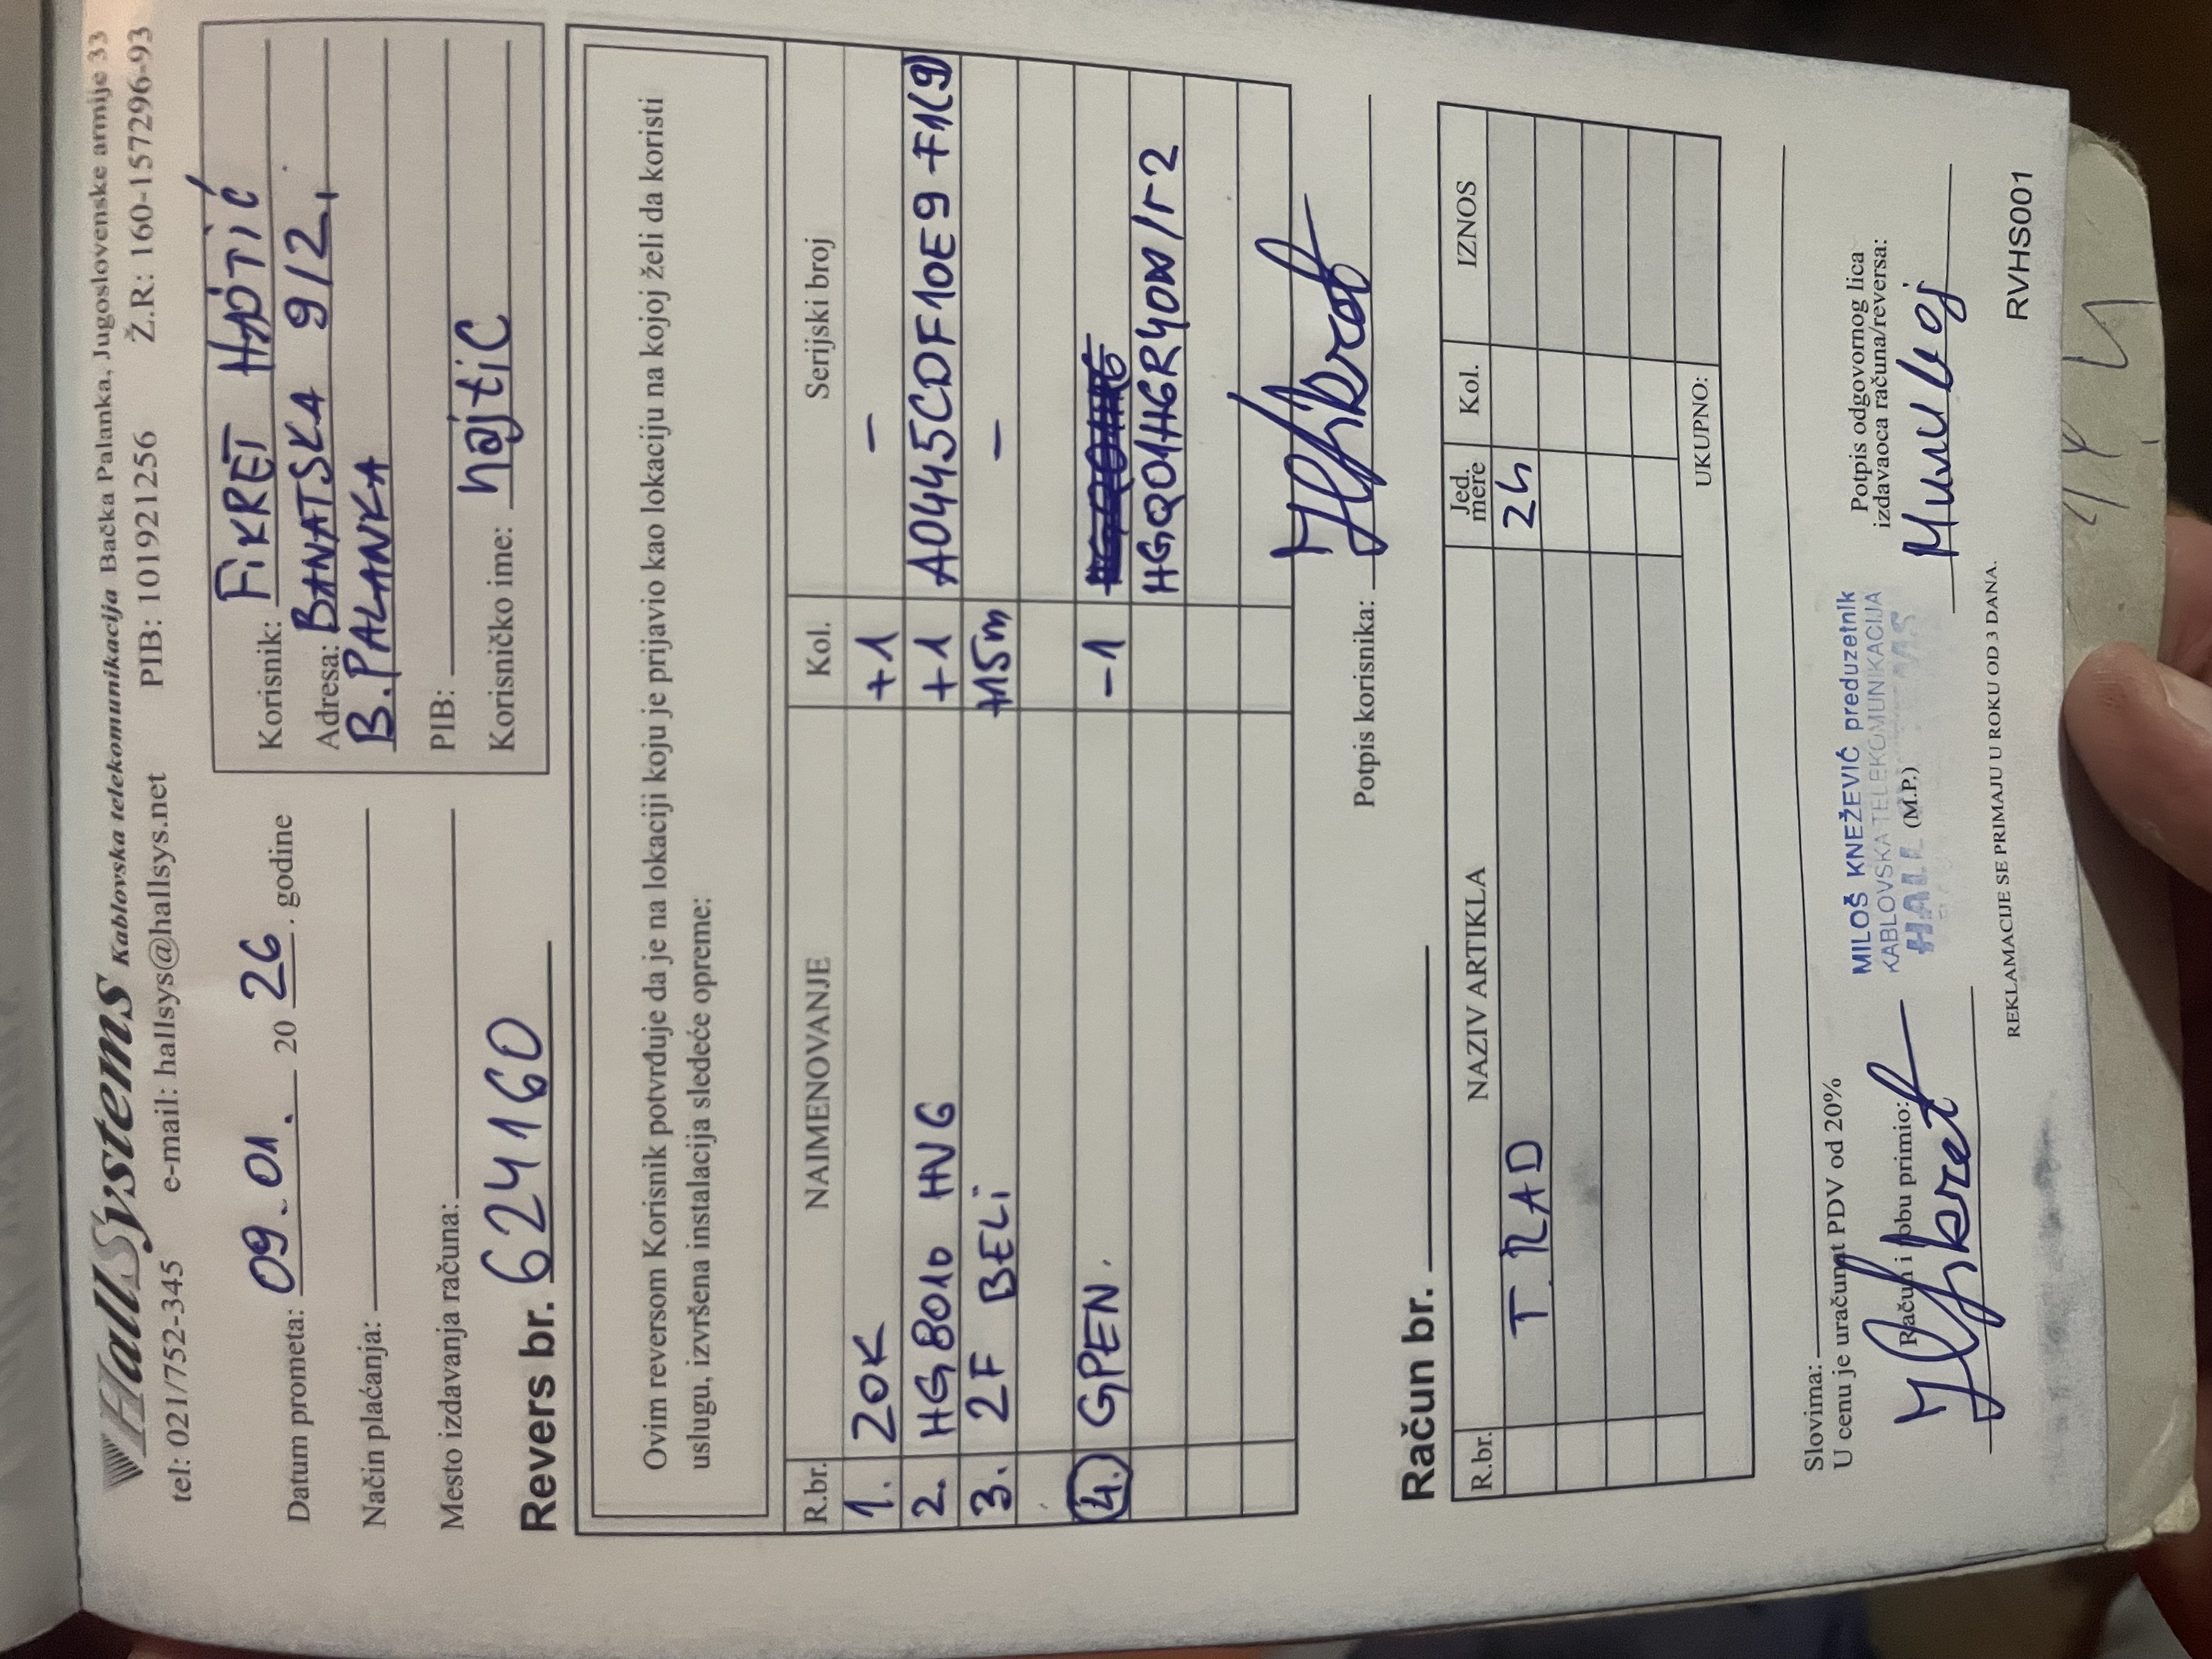 HallSystems Kablovska telekomunikacija Bačka Palanka, Jugoslovenske armije 33
tel: 021/752-345 e-mail: hallsys@hallsys.net PIB: 101921256 Ž.R: 160-157296-93
Datum prometa: 09.01. 2026. godine
Način plaćanja:
Mesto izdavanja računa:
Revers br. 624160
Korisnik: FIKRET HAJTIĆ
Adresa: BANATSKA 9/2,
B.PALANKA
PIB:
Korisničko ime: hajtic
Ovim reversom Korisnik potvrđuje da je na lokaciji koju je prijavio kao lokaciju na kojoj želi da koristi
uslugu, izvršena instalacija sledeće opreme:
R.br. NAIMENOVANJE Kol. Serijski broj
1. ZOK +1 –
2. HG8010 HNG +1 A0445CDF10E9-F1(9)
3. 2F BELI +15m –
4. GPEN. -1
HGQ01H6R40W/r2
Potpis korisnika:
Račun br.
R.br. NAZIV ARTIKLA Jed. mere Kol. IZNOS
T. RAD 2h
UKUPNO:
Slovima:
U cenu je uračunat PDV od 20%
Račun i robu primio:
MILOŠ KNEŽEVIĆ preduzetnik
KABLOVSKA TELEKOMUNIKACIJA
(M.P.)
Potpis odgovornog lica
izdavaoca računa/reversa:
REKLAMACIJE SE PRIMAJU U ROKU OD 3 DANA.
RVHS001